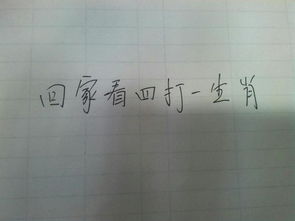 回家看四打一生肖